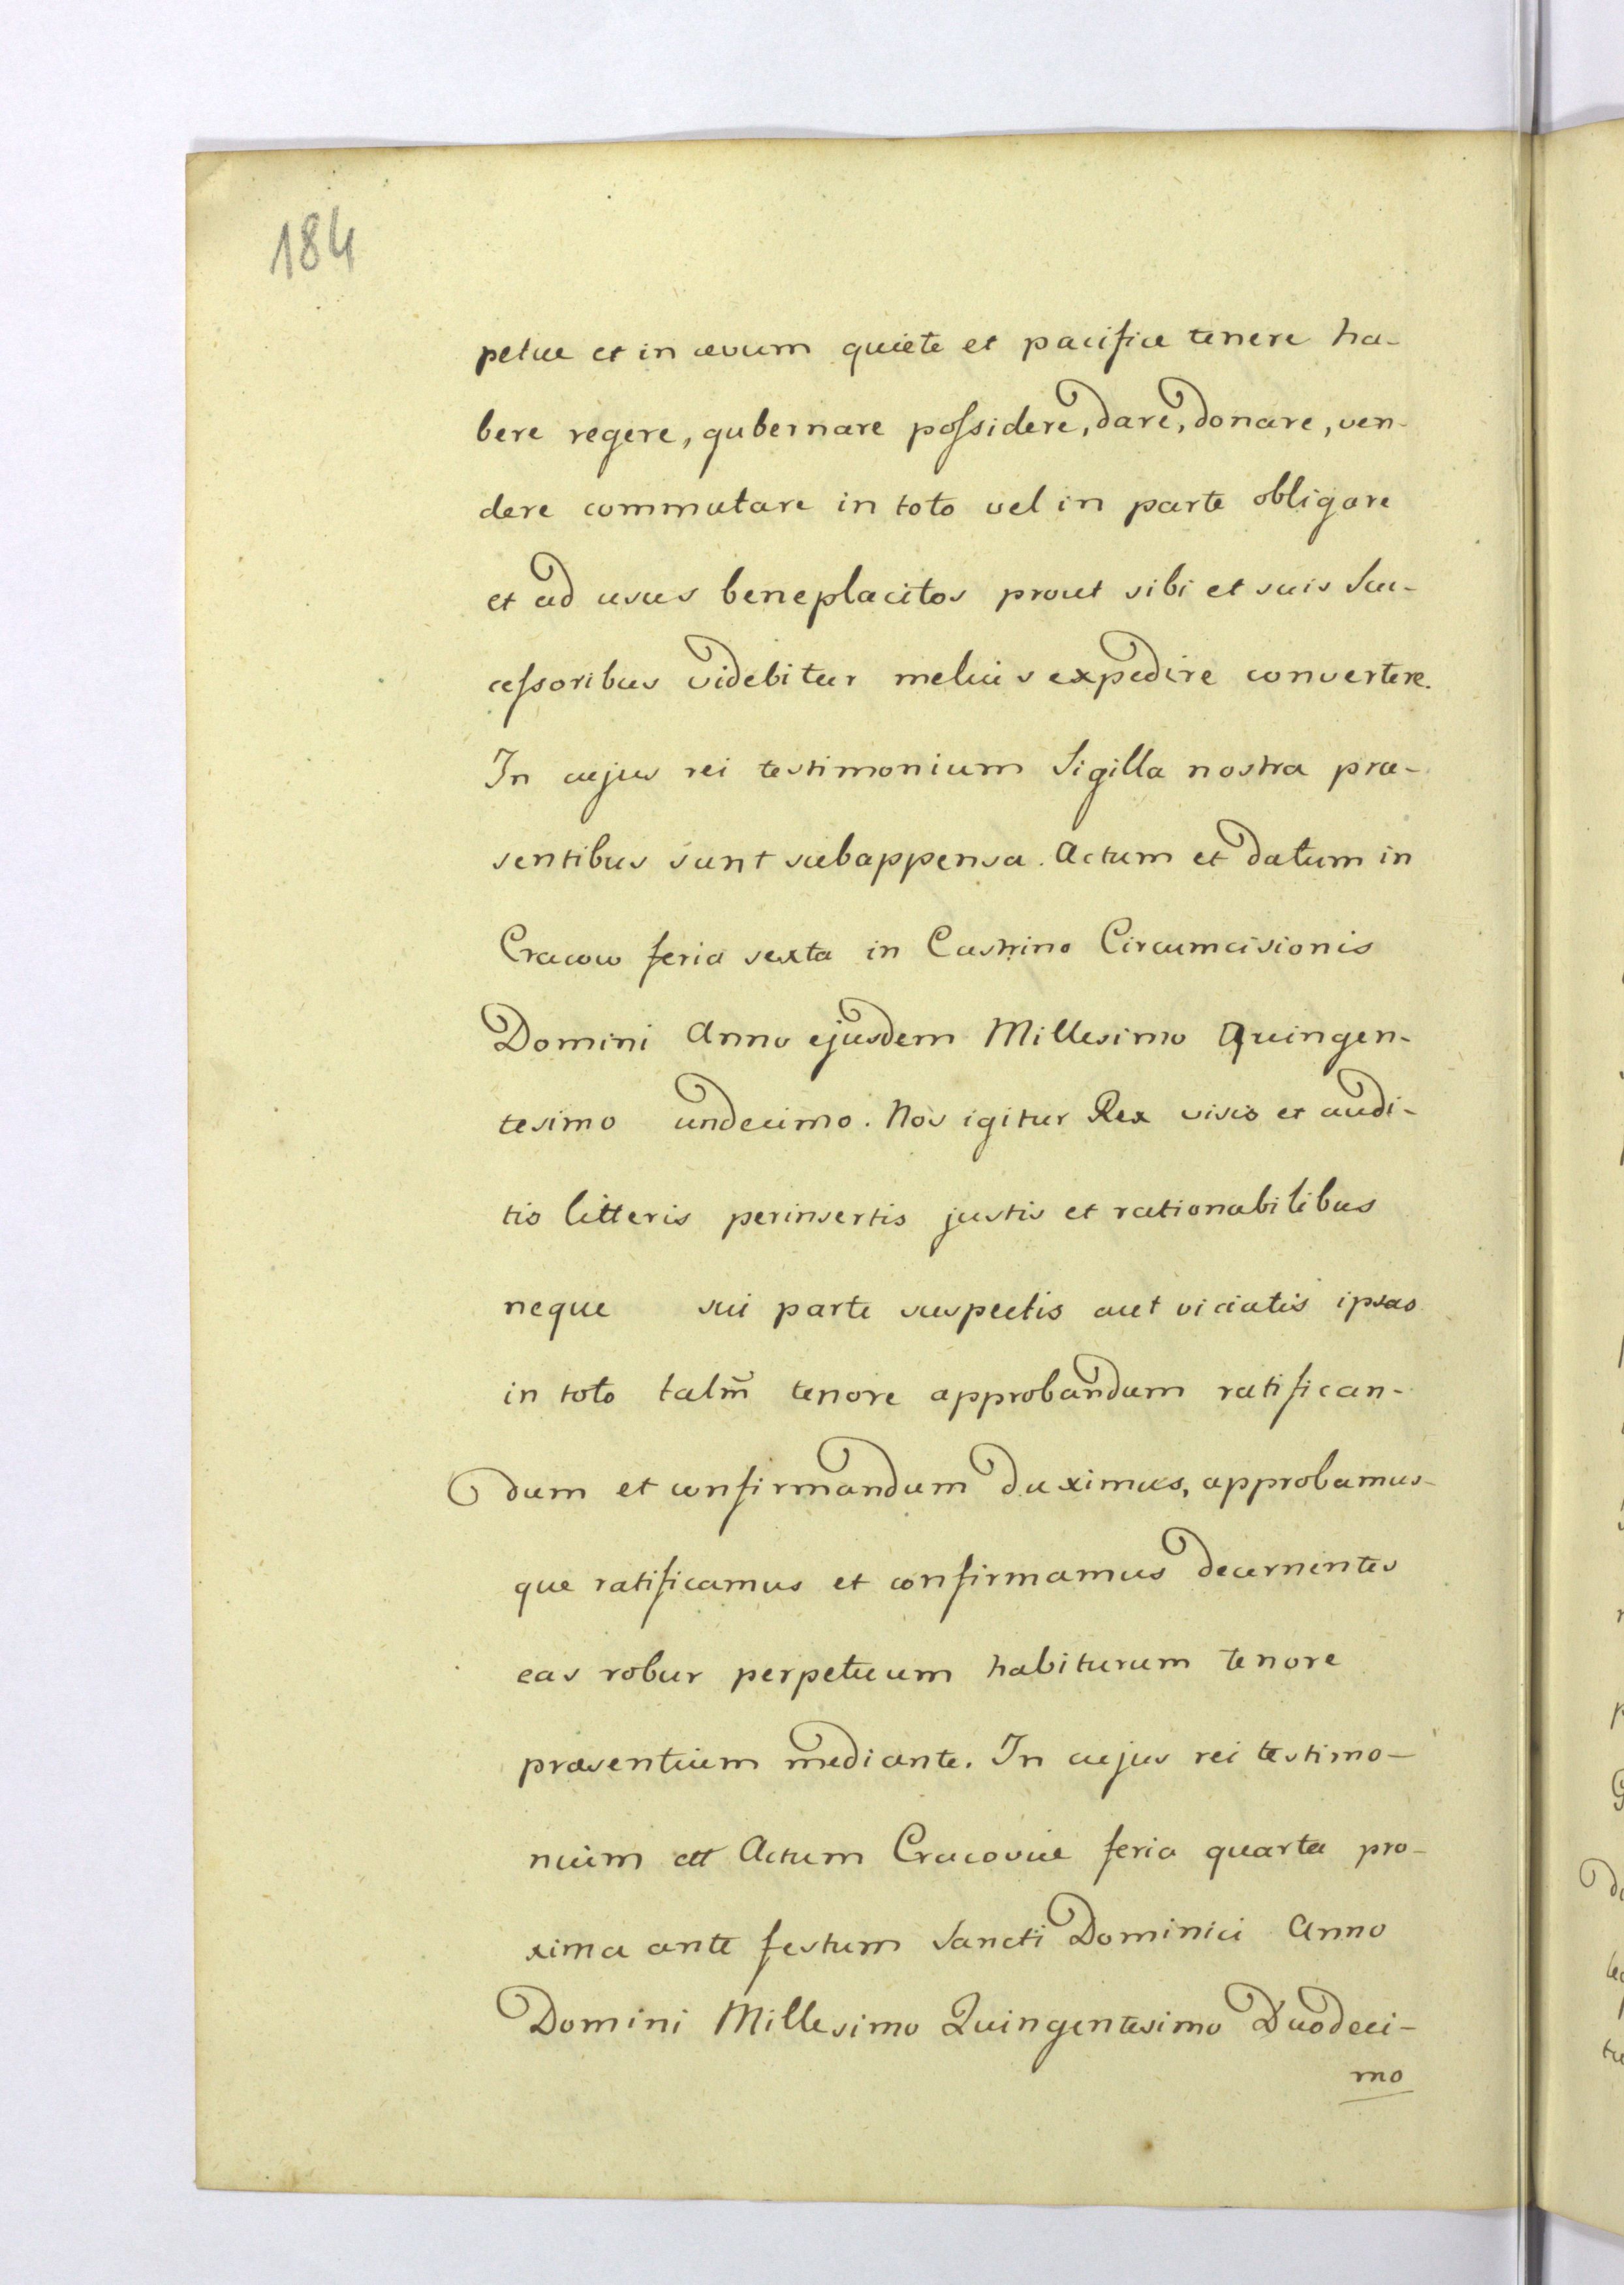 184
petue et in ævum quiete et pacifice tenere ha-
bere regere, gubernare possidere, dare, donare, ven-
dere commutare in toto vel in parte obligare
et ad usus beneplacitos prout sibi et suis Suc-
cessoribus videbitur melius expedire convertere.
In cujus rei testimonium Sigilla nostra præ-
sentibus sunt subappensa. Actum et datum in
Cracow feria sexta in Castrino Circumcisionis
Domini Anno ejusdem Millesimo Quingen-
tesimo undecimo. Nos igitur Rex visis et audi-
tis litteris perinsertis justis et rationabilibus
neque sui parte suspectis aut viciatis ipsas
in toto talm̃ tenore approbandum ratifican-
dum et confirmandum duximus, approbamus-
que ratificamus et confirmamus decernentes
eas robur perpetuum habiturum tenore
præsentium mediante. In cujus rei testimo-
nium ett Actum Cracoviæ feria quarta pro-
xima ante festum Sancti Dominici Anno
Domini Millesimo Quingentesimo Duodeci-
mo